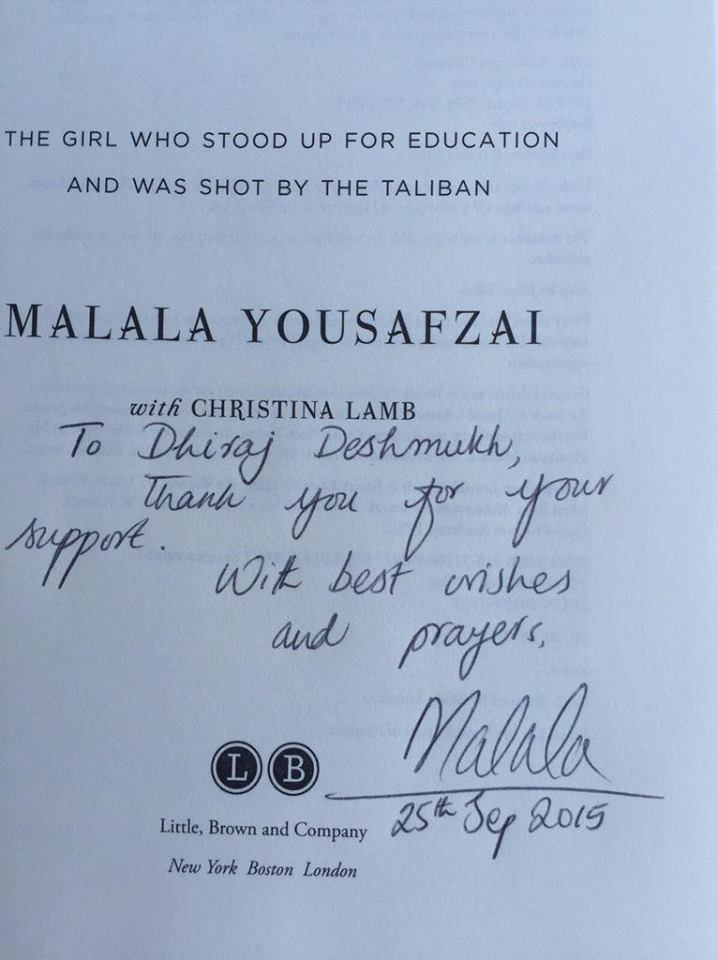 THE GIRL WHO STOOD UP FOR EDUCATION
AND WAS SHOT BY THE TALIBAN
MALALA YOUSAFZAI
with CHRISTINA LAMB
To Dhiraj Deshmukh,
Thank you for your
support.
With best wishes
and prayers,
Malala
25th Sep 2015
L B
Little, Brown and Company
New York Boston London